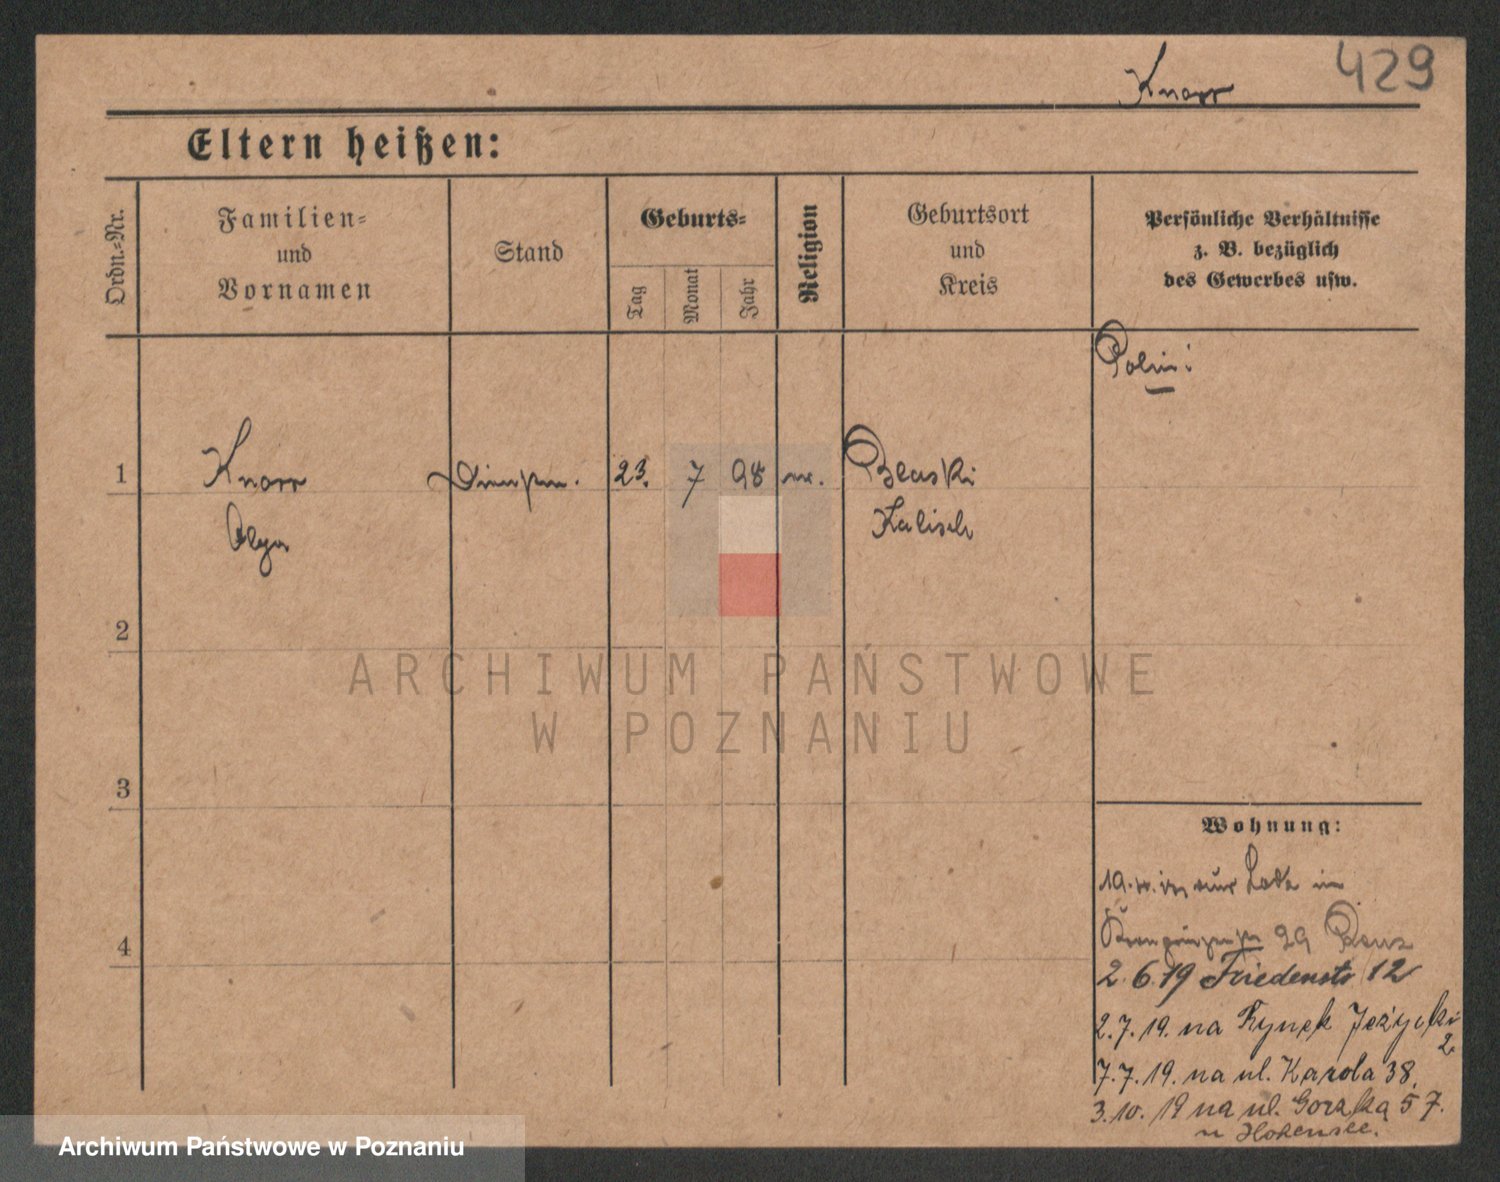 Knorr
429
Eltern heißen:
Ordn.=Nr.
Familien=
und
Vornamen
Stand
Geburts=
Tag
Monat
Jahr
Religion
Geburtsort
und
Kreis
Persönliche Verhältnisse
z. B. bezüglich
des Gewerbes usw.
1
Knorr
23.
7
98
Blaski
Olga
Kalisch
2
ARCHIWUM PAŃSTWOWE
W POZNANIU
3
Wohnung:
4
29
2.6.19 Friedenstr 12
2.7.19. na Rynek Jeżycki
2.
7.7.19. na ul. Karola 38.
3.10.19 na ul. Gorzka 57.
Archiwum Państwowe w Poznaniu